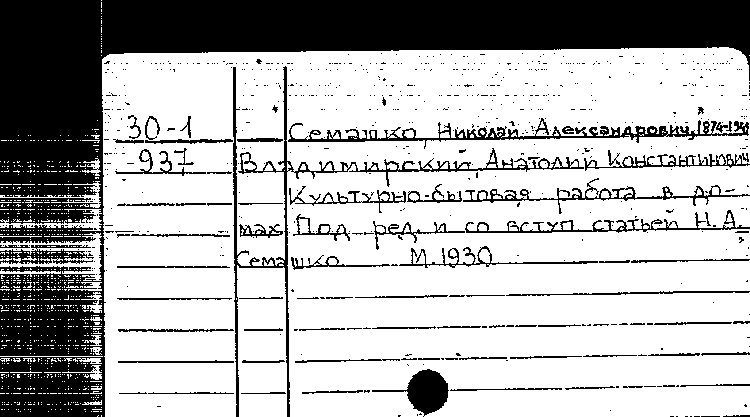 30-1 Семашко, Николай Александрович, 1874-1949
937 Владимирский, Анатолий Константинович
Культурно-бытовая работа в до-
мах. Под ред. и со вступ статьей Н. А.
Семашко. М. 1930